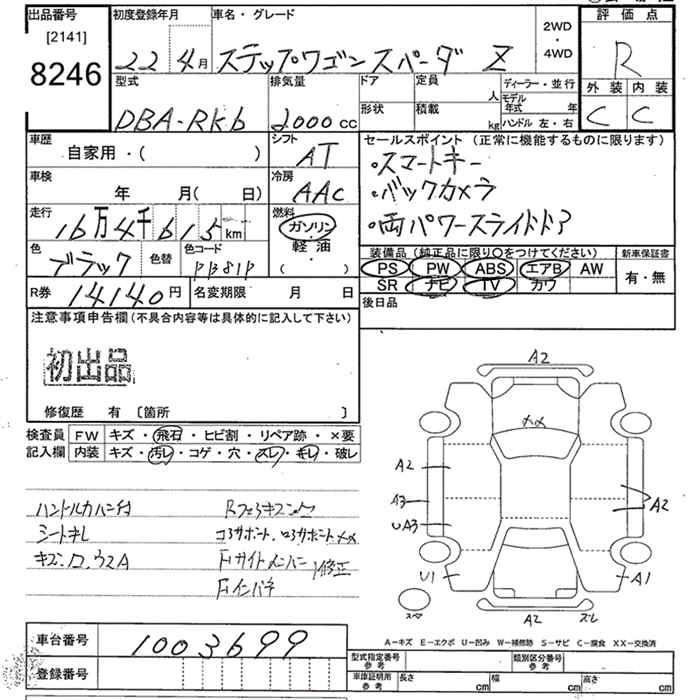 出品番号
[2141]
8246
初度登録年月
22 4月
車名・グレード
ステップワゴン スパーダ Z
2WD
・
4WD
評価点
R
外装 内装
C C
型式
DBA-RK6
排気量
2000cc
ドア
定員
人
形状
積載
kg
ディーラー・並行
モデル年式 年
ハンドル 左・右
車歴
自家用・( )
シフト
AT
車検
年 月( 日)
冷房
AAC
走行
16万4千615km
燃料
ガソリン
・
軽油
( )
色
ブラック
色替
色コード
R券
14140円
名変期限 月 日
セールスポイント (正常に機能するものに限ります)
・スマートキー
・バックカメラ
・両パワースライドドア
装備品 (純正品に限り○をつけてください)
新車保証書
PS PW ABS エアB AW
有・無
SR ナビ TV カワ
後日品
注意事項申告欄(不具合内容等は具体的に記入して下さい)
初出品
修復歴 有 〔箇所 〕
検査員
記入欄
FW キズ・飛石・ヒビ割・リペア跡・×要
内装 キズ・汚レ・コゲ・穴・スレ・キレ・破レ
ハンドルカバー付
シートキレ
修正
A2
A2
A3
UA3
U1
A2
A1
A2
スレ
スペア
A－キズ E－エクボ U－凹み W－補修跡 S－サビ C－腐食 XX－交換済
車台番号
1003699
登録番号
型式指定番号
参考
類別区分番号
参考
車庫証明用
参考
長さ cm 幅 cm 高さ cm